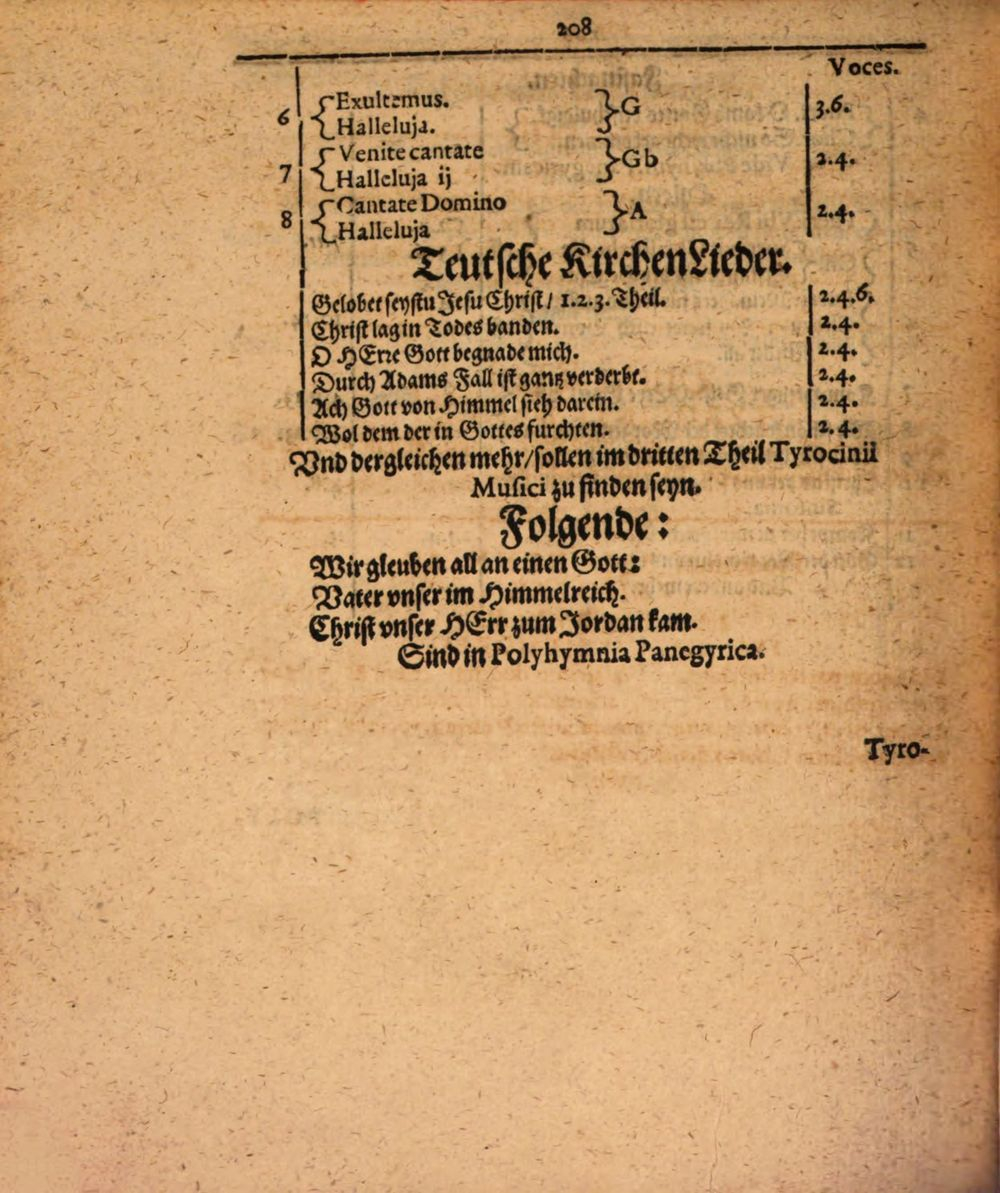 208
Voces.
6 { Exultemus. } G 3.6.
Halleluja.
7 { Venite cantate } Gb 2.4.
Halleluja ij
8 { Cantate Domino } A 2.4.
Halleluja
Teutsche KirchenLieder.
Gelobet seystu Jesu Christ / 1.2.3. Theil. 2.4.6.
Christ lag in Todes banden. 2.4.
O HErre Gott begnade mich. 2.4.
Durch Adams Fall ist gantz verderbt. 2.4.
Ach Gott von Himmel sieh darein. 2.4.
Wol dem der in Gottes furchten. 2.4.
Vnd dergleichen mehr / sollen im dritten Theil Tyrocinii
Musici zu finden seyn.
Folgende:
Wir gleuben all an einen Gott:
Vater vnser im Himmelreich.
Christ vnser HErr zum Jordan kam.
Sind in Polyhymnia Panegyrica.
Tyro-